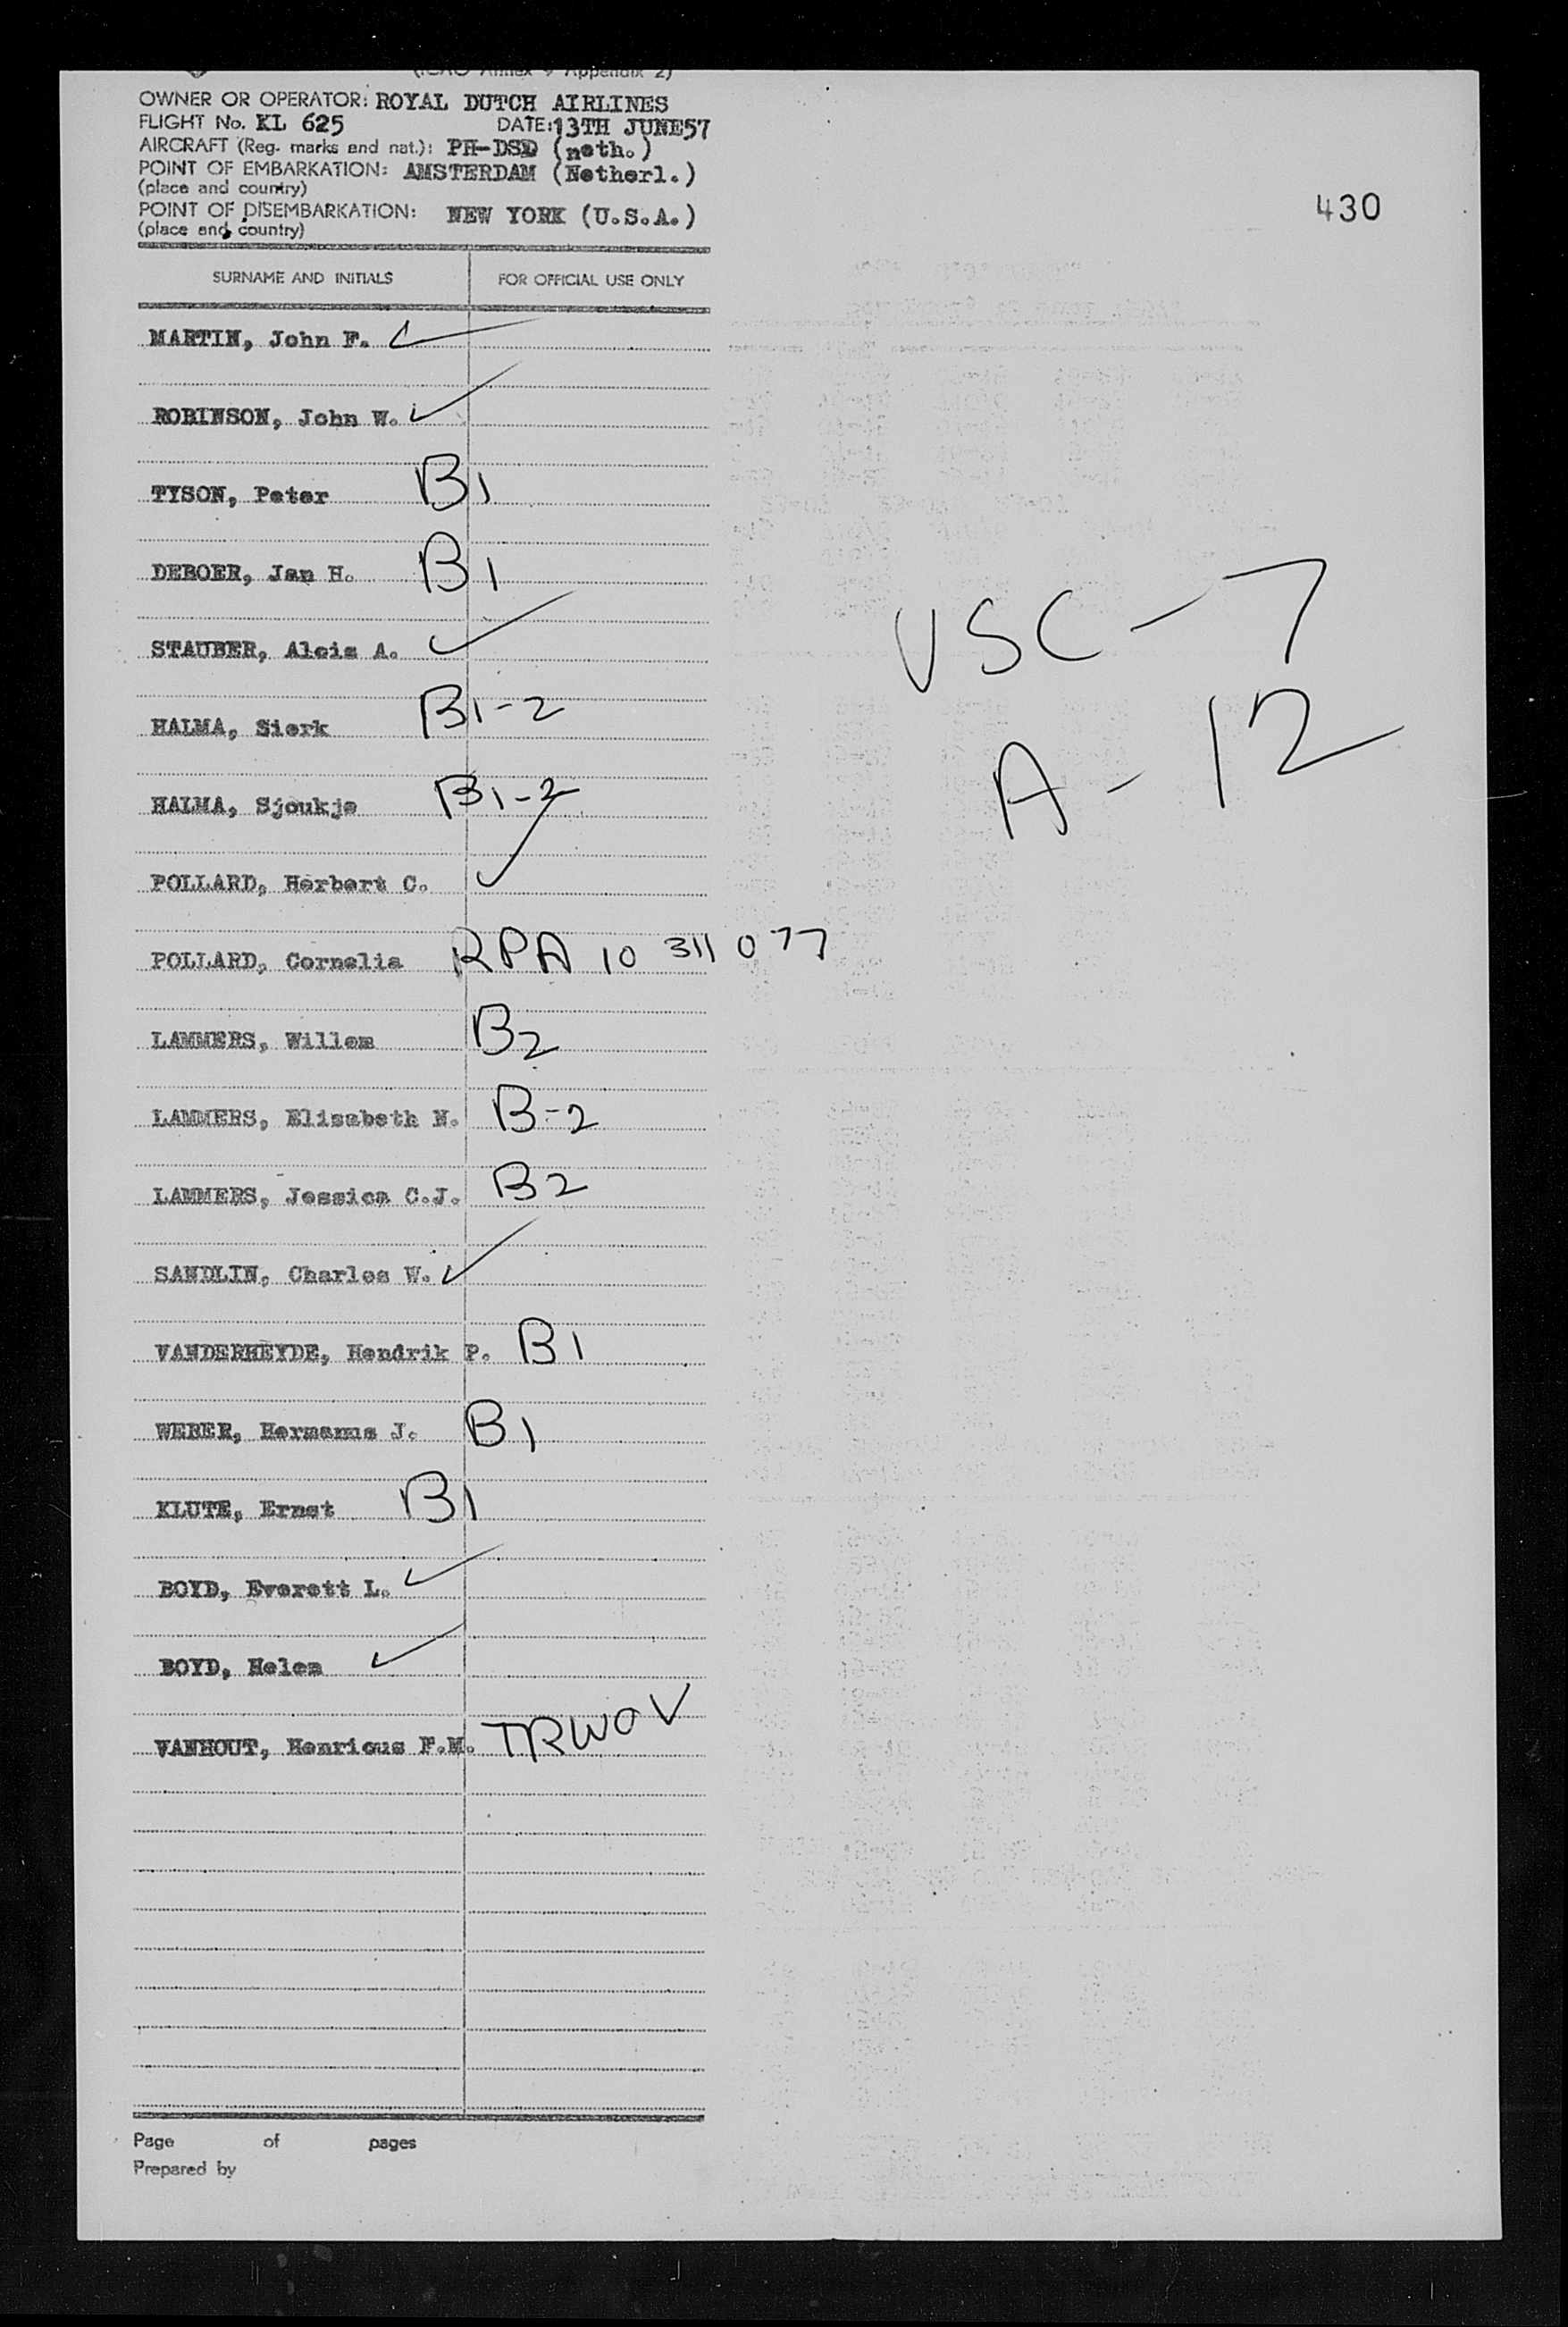 (ICAO Annex 9 Appendix 2)
OWNER OR OPERATOR: ROYAL DUTCH AIRLINES
FLIGHT No. KL 625 DATE: 13TH JUNE57
AIRCRAFT (Reg. marks and nat.): PH-DSD (neth.)
POINT OF EMBARKATION: AMSTERDAM (Netherl.)
(place and country)
POINT OF DISEMBARKATION: NEW YORK (U.S.A.)
(place and country)
430
SURNAME AND INITIALS FOR OFFICIAL USE ONLY
MARTIN, John F. ✓
ROBINSON, John W. ✓
TYSON, Peter B1
DEBOER, Jan H. B1
STAUBER, Alois A. ✓
HALMA, Sierk B1-2
HALMA, Sjoukje B1-2
POLLARD, Herbert C. ✓
POLLARD, Cornelia RPA 10 311 077
LAMMERS, Willem B2
LAMMERS, Elisabeth N. B-2
LAMMERS, Jessica C.J. B2
SANDLIN, Charles W. ✓
VANDERHEYDE, Hendrik P. B1
WEBER, Hermanus J. B1
KLUTE, Ernst B1
BOYD, Everett L. ✓
BOYD, Helen ✓
VANHOUT, Henricus F.M. TRWOV
USC-7
A-12
Page of pages
Prepared by